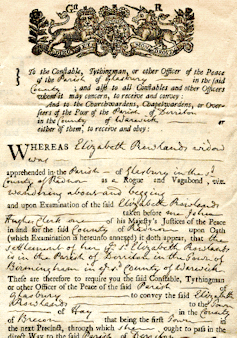 G R
To the Constable, Tythingman, or other Officer of the Peace
of the Parish of Glasbury in the said
County; and also to all Constables and other Officers
whom it may concern, to receive and convey:
And to the Churchwardens, Chapelwardens, or Over-
seers of the Poor of the Parish of Derriton
in the County of Warwick or
either of them, to receive and obey:
WHEREAS Elizabeth Rowlands widow
was
apprehended in the Parish of Glesbury in the sd
County of Radnor as a Rogue and Vagabond, viz.
wandering about and begging
and upon Examination of the said Elizabeth Rowlands
taken before me John
Hughes Clerk one of his Majesty's Justices of the Peace
in and for the said County of Radnor upon Oath
(which Examination is hereunto annexed) it doth appear, that the
settlement of her the sd Elizabeth Rowlands
is in the Parish of Derriton in the Town of
Birmingham in ye sd County of Warwick
These are therefore to require you the said Constable, Tythingman
or other Officer of the Peace of the said Parish of
Glasbury to convey the said Elizabeth
Rowlands to the Town
of Hay in the County
of Brecon that being the first Town in
the next Precinct, through which she ought to pass in the
direct Way to the said Parish of Derriton